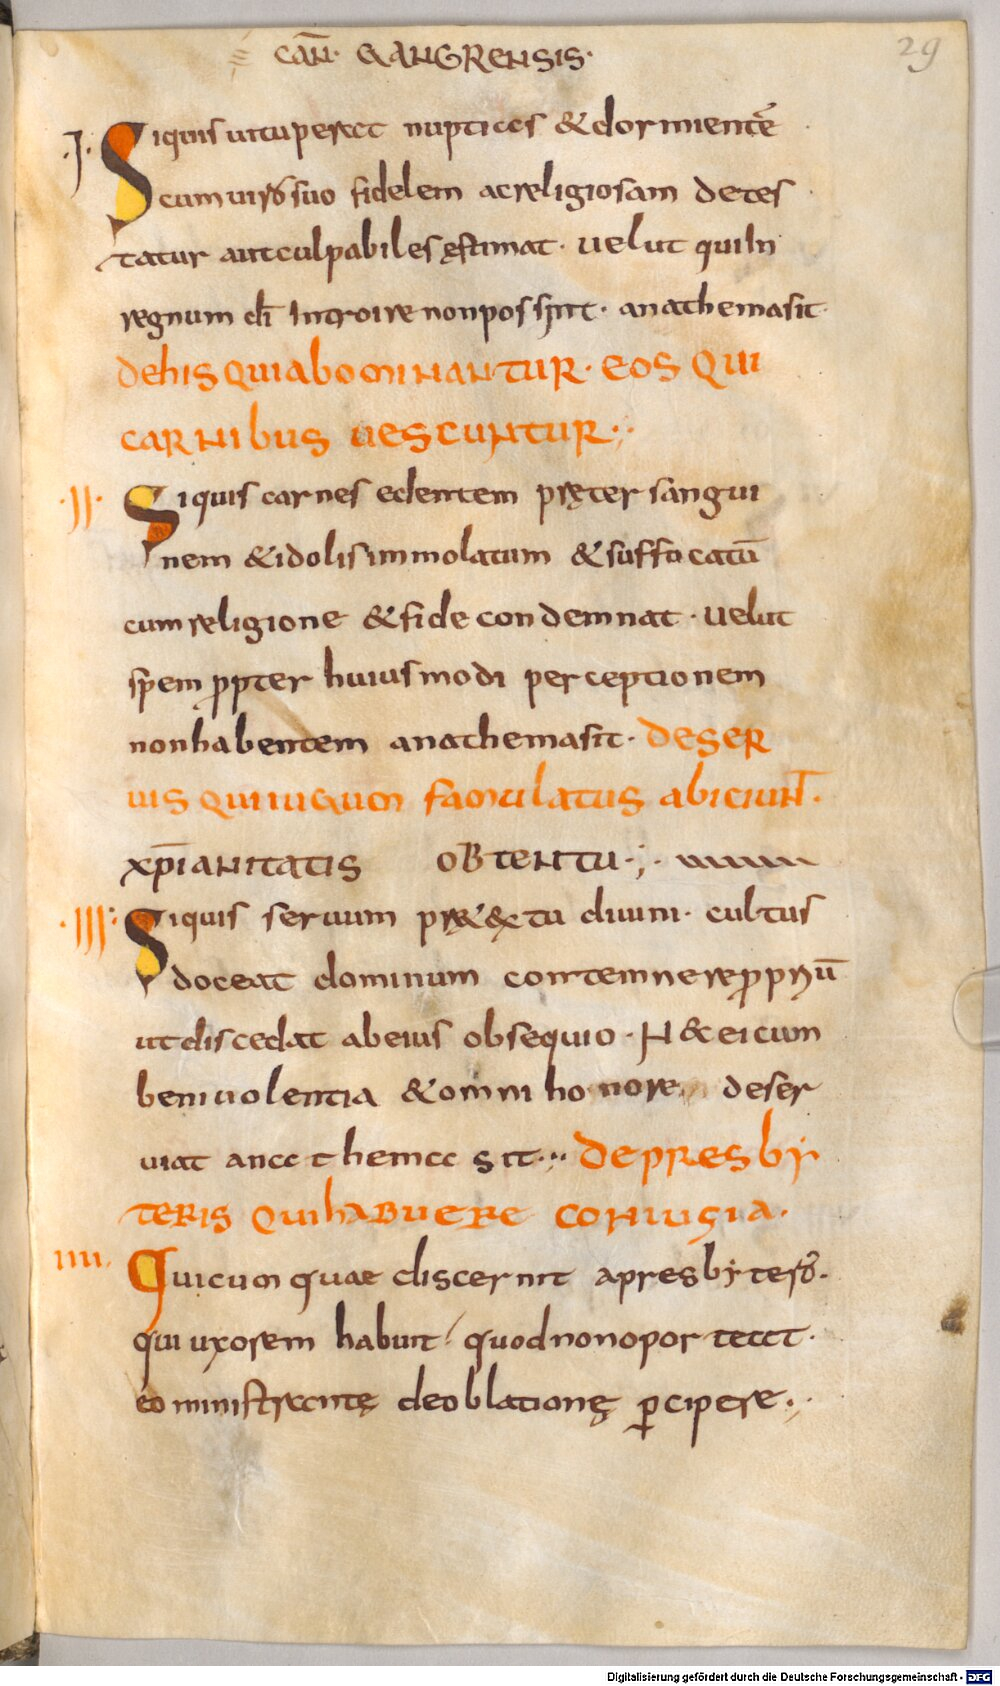 CAÑ· GANGRENSIS·
29
·I· Siquis uituperat nuptias &dormientē
cumuiro suo fidelem acreligiosam detes
tatur autculpabilesęstimat· uelut quiIn
regnum dī Introire nonpossint· anathemasit·
DEHIS QUIABOMINANTUR· EOS QUI
CARNIBUS UESCUNTUR·;·
·II· Siquis carnes edentem pręter sangui
nem &idolisimmolatum &suffocatū
cumreligione &fide condemnat· uelut
spem ꝓpter huiusmodi perceptionem
nonhabentem anathemasit· DESER
UIS QUIIUGUM FAMULATUS ABICIUNT̄·
XP̄IANITATIS OBTENTU·;·
·III· Siquis seruum pręt&xtu diuini· cultus
doceat dominum contemnereꝓpriū
utdiscedat abeius obsequio· N&eicum
beniuolentia &omni honore deser
uiat anathema sit·:· DEPRESBY
TERIS QUIHABUERE CONIUGIA·
IIII· Quicumquae discernit apresbytero·
qui uxorem habuit/ quodnonoportetat·
eo ministrantę deoblationę ꝑcipere·;·
Digitalisierung gefördert durch die Deutsche Forschungsgemeinschaft - DFG